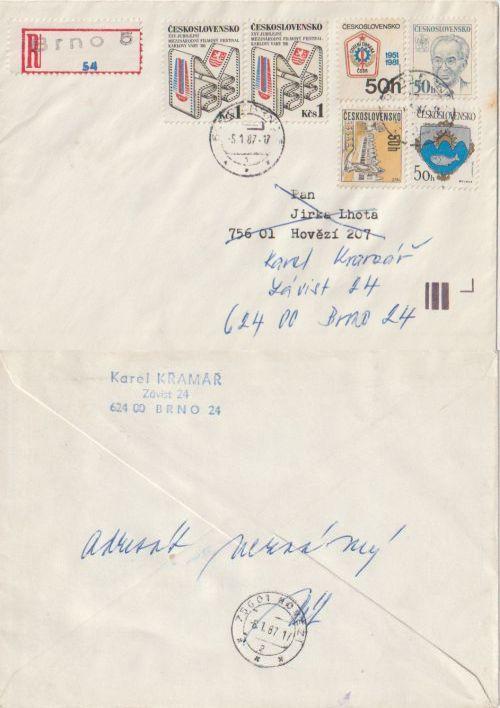 R Brno 5
54
ČESKOSLOVENSKO
XXV. JUBILEJNÍ
MEZINÁRODNÍ FILMOVÝ FESTIVAL
KARLOVY VARY '86
Kčs 1
ČESKOSLOVENSKO
XXV. JUBILEJNÍ
MEZINÁRODNÍ FILMOVÝ FESTIVAL
KARLOVY VARY '86
Kčs 1
ČESKOSLOVENSKO
1951
1981
50h
ČESKOSLOVENSKO
50h
ČESKOSLOVENSKO
50h
ČESKOSLOVENSKO
50h
-5.1.87-17
Pan
Jirka Lhota
756 01 Hovězí 207
Karel Kramář
Závist 24
624 00 Brno 24
Karel KRAMÁŘ
Závist 24
624 00 BRNO 24
adresát neznámý
75601 HOVĚZÍ
-6.1.87 17
2